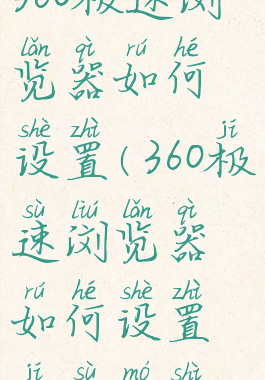 360极速浏
lǎn qì rú hé
览器如何
shè zhì jí
设置(360极
sù liú lǎn qì
速浏览器
rú hé shè zhì
如何设置
jí sù mó shì